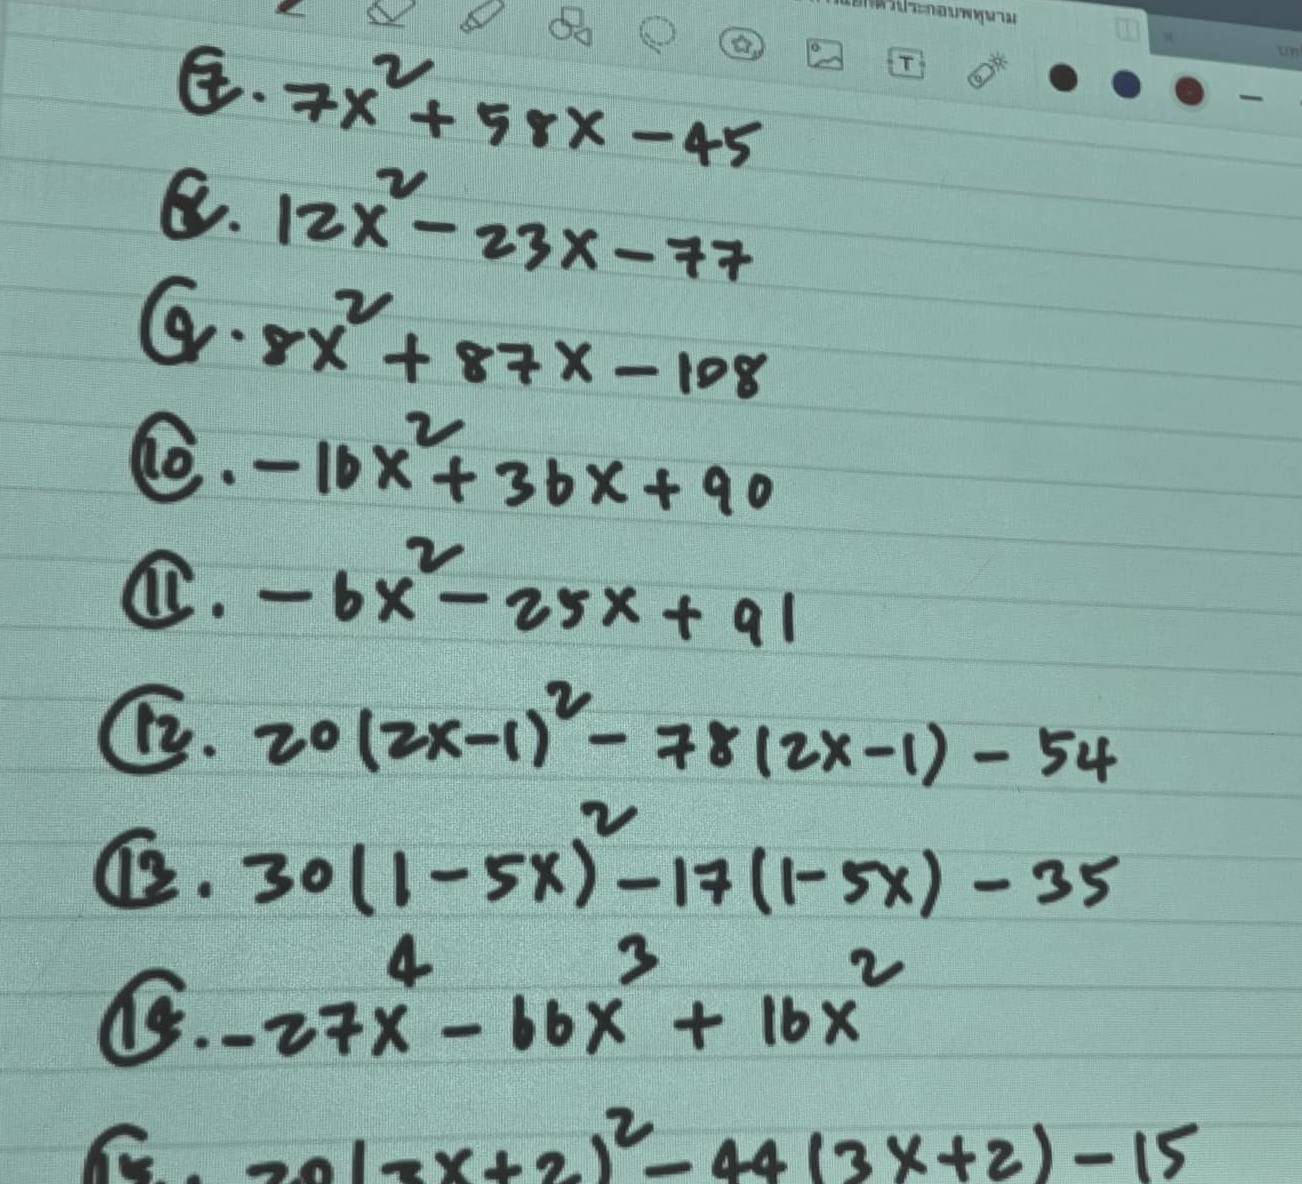 ⑦. 7x² + 58x - 45
⑧. 12x² - 23x - 77
⑨. 8x² + 87x - 108
⑩. -16x² + 36x + 90
⑪. -6x² - 25x + 91
⑫. 20(2x-1)² - 78(2x-1) - 54
⑬. 30(1-5x)² - 17(1-5x) - 35
⑭. -27x⁴ - 66x³ + 16x²
(3x+2)² - 44(3x+2) - 15